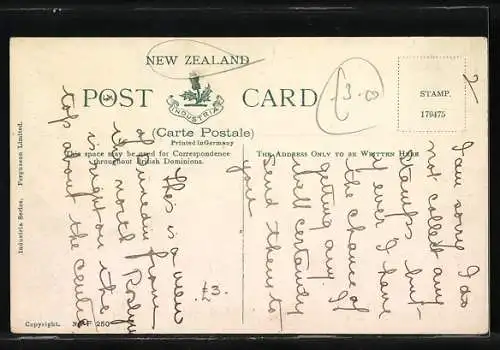 NEW ZEALAND
POST CARD
INDUSTRIA
(Carte Postale)
Printed in Germany
This space may be used for Correspondence
throughout British Dominions.
THE ADDRESS ONLY TO BE WRITTEN HERE
STAMP.
179475
Industria Series. Fergusson Limited.
Copyright. 250
£3.0
£3.
2/-
This is a view
of Dunedin from
the north Roslyn
is right on the
top about the centre
I am sorry I do
not collect any
stamps but
if ever I have
the chance of
getting any I
shall certainly
send them to
you